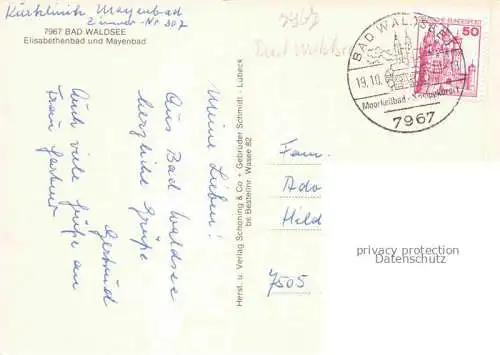 Kurklinik Mayenbad
Zimmer-Nr 307
7967 BAD WALDSEE
Elisabethenbad und Mayenbad
Meine Lieben!
Aus Bad Waldsee
herzliche Grüße
Gertrud
Auch viele Grüße an
Frau Gartner
Herst. u. Verlag Schöning & Co + Gebrüder Schmidt · Lübeck
br. Bestellnr. Wasee 82
7967
Bad Waldsee
BAD WALDSEE
19.10.
Moorheilbad - Kneippkurort
7967
DEUTSCHE BUNDESPOST
50
Fam.
Ado
Hild
7505
privacy protection
Datenschutz